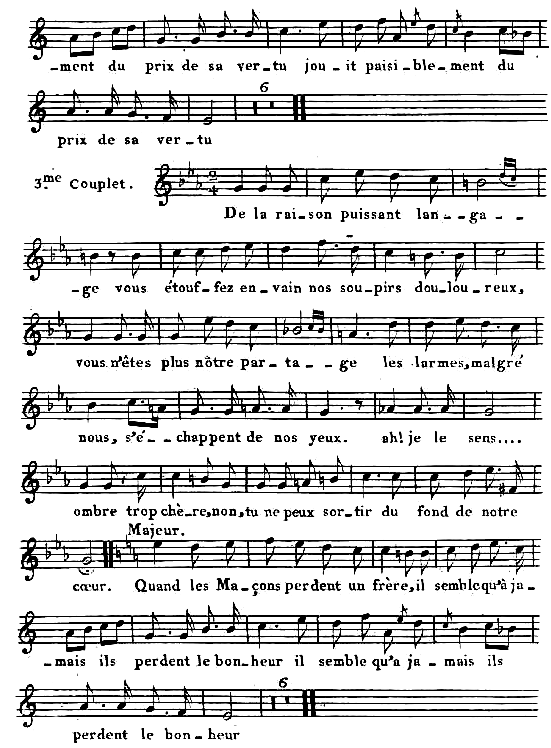 -ment du prix de sa ver-tu jou-it paisi-ble-ment du
6
prix de sa ver-tu
3.me Couplet.
De la rai-son puissant lan--ga--
-ge vous étouf-fez en-vain nos sou-pirs dou-lou-reux,
vous n'êtes plus nôtre par-ta-ge les larmes, malgré
nous, s'é--chappent de nos yeux. ah! je le sens....
ombre trop chè-re, non, tu ne peux sor-tir du fond de notre
Majeur.
cœur. Quand les Ma-çons perdent un frère, il semble qu'à ja-
-mais ils perdent le bon-heur il semble qu'a ja-mais ils
6
perdent le bon-heur